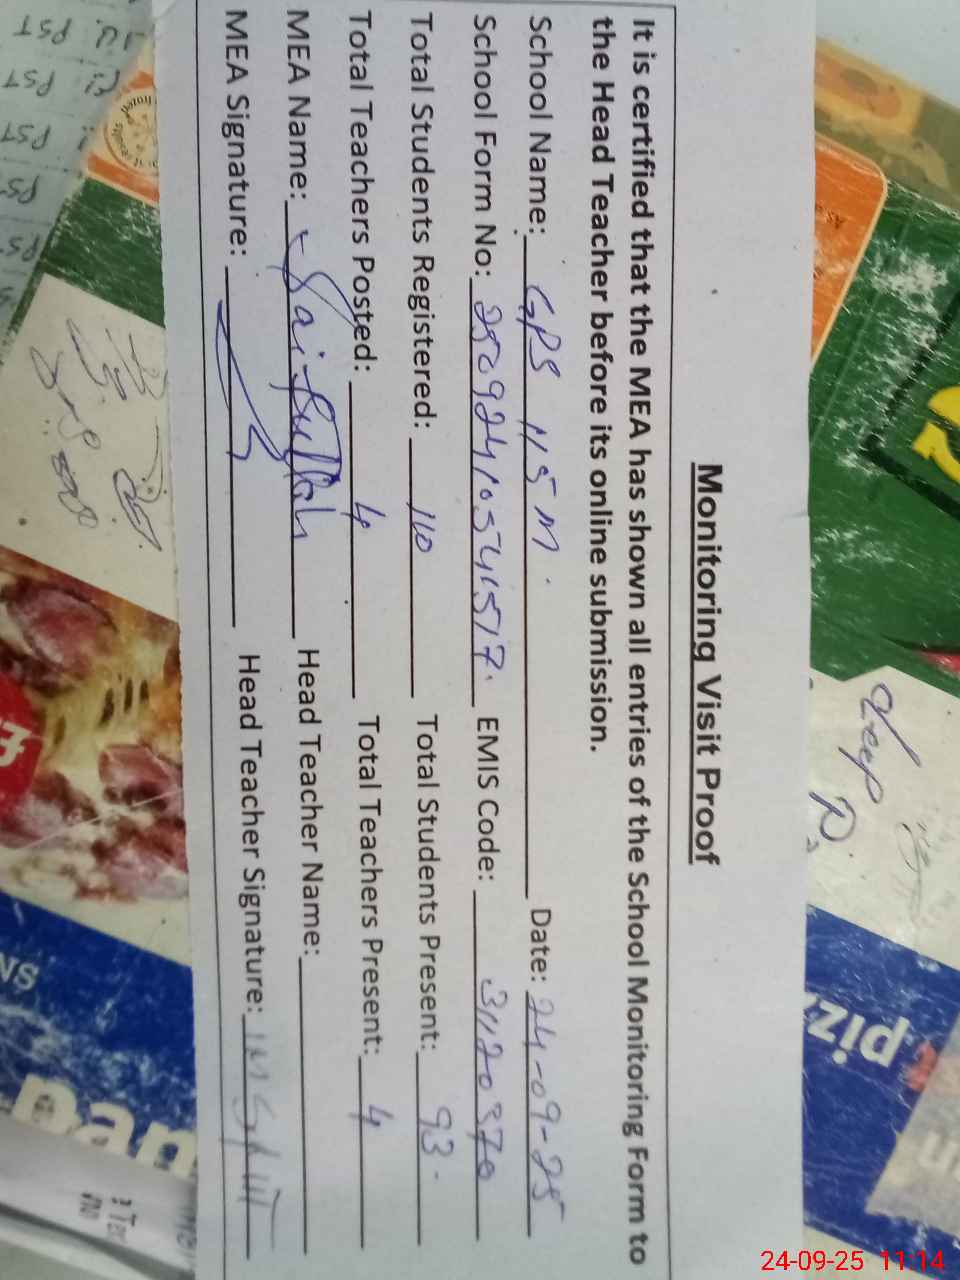 Monitoring Visit Proof
It is certified that the MEA has shown all entries of the School Monitoring Form to
the Head Teacher before its online submission.
School Name: GPS 115 M. Date: 24-09-25
School Form No: 25092410541517. EMIS Code: 31120370
Total Students Registered: 110 Total Students Present: 93.
Total Teachers Posted: 4 Total Teachers Present: 4
MEA Name: Saifullah Head Teacher Name:
MEA Signature: Head Teacher Signature:
PST
PST
PST
piz
24-09-25 11:14